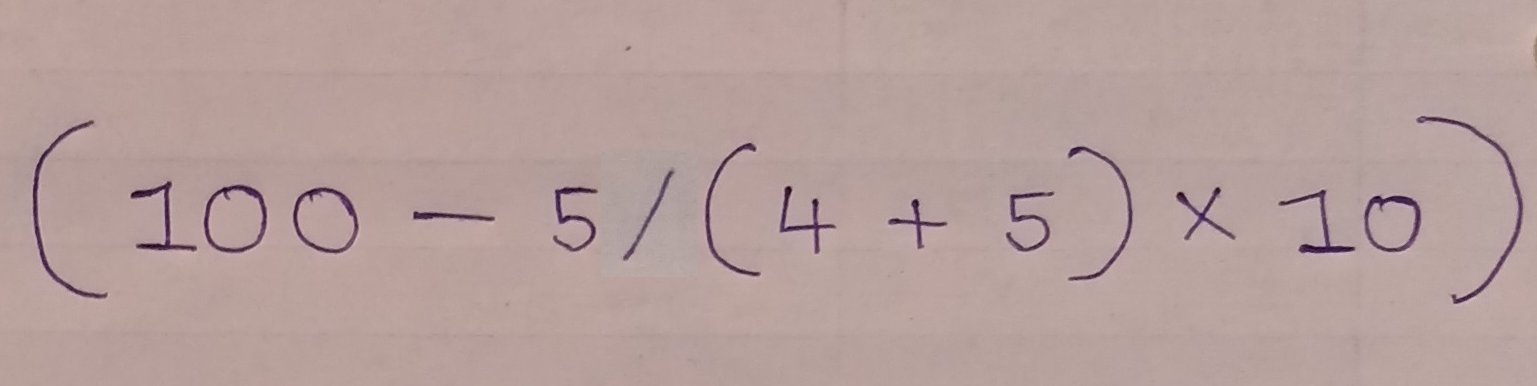 (100 - 5/(4 + 5) × 10)